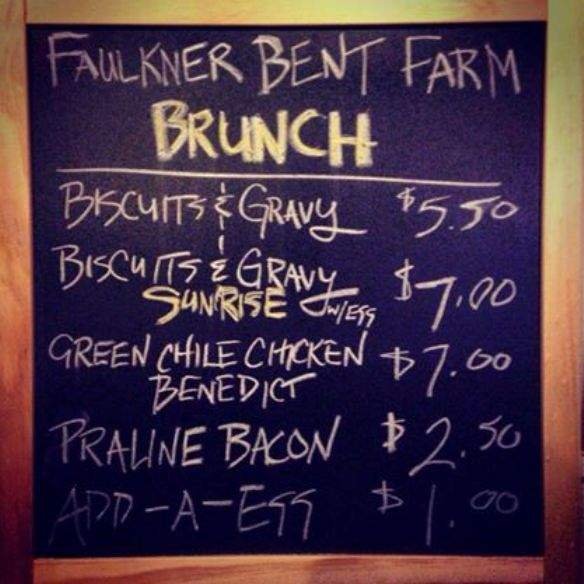 FAULKNER BENT FARM
BRUNCH
BISCUITS & GRAVY $5.50
BISCUITS & GRAVY $7.00
SUNRISE W/EGG
GREEN CHILE CHICKEN $7.00
BENEDICT
PRALINE BACON $2.50
ADD-A-EGG $1.00